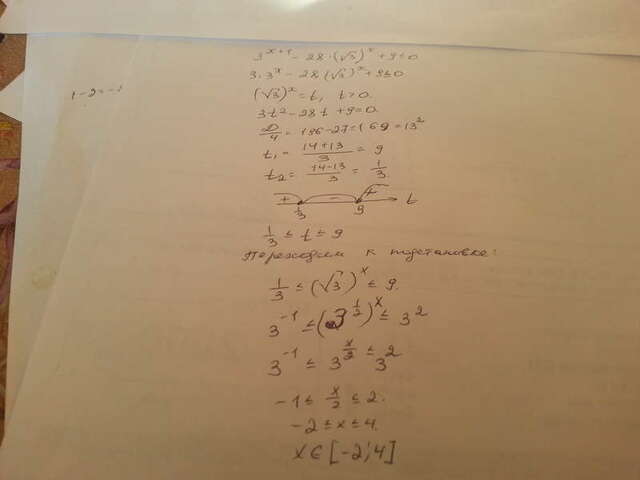 3^{x+1} - 28·(√3)^x + 9 ≤ 0
3·3^x - 28(√3)^x + 9 ≤ 0
1-2=-1
(√3)^x = t, t>0.
3t² - 28t + 9 = 0.
D/4 = 196 - 27 = 169 = 13²
t₁ = (14+13)/3 = 9
t₂ = (14-13)/3 = 1/3
+ - +
1/3 9 t
1/3 ≤ t ≤ 9
Переходим к подстановке:
1/3 ≤ (√3)^x ≤ 9.
3^{-1} ≤ (3^{1/2})^x ≤ 3²
3^{-1} ≤ 3^{x/2} ≤ 3²
-1 ≤ x/2 ≤ 2.
-2 ≤ x ≤ 4.
x ∈ [-2; 4]